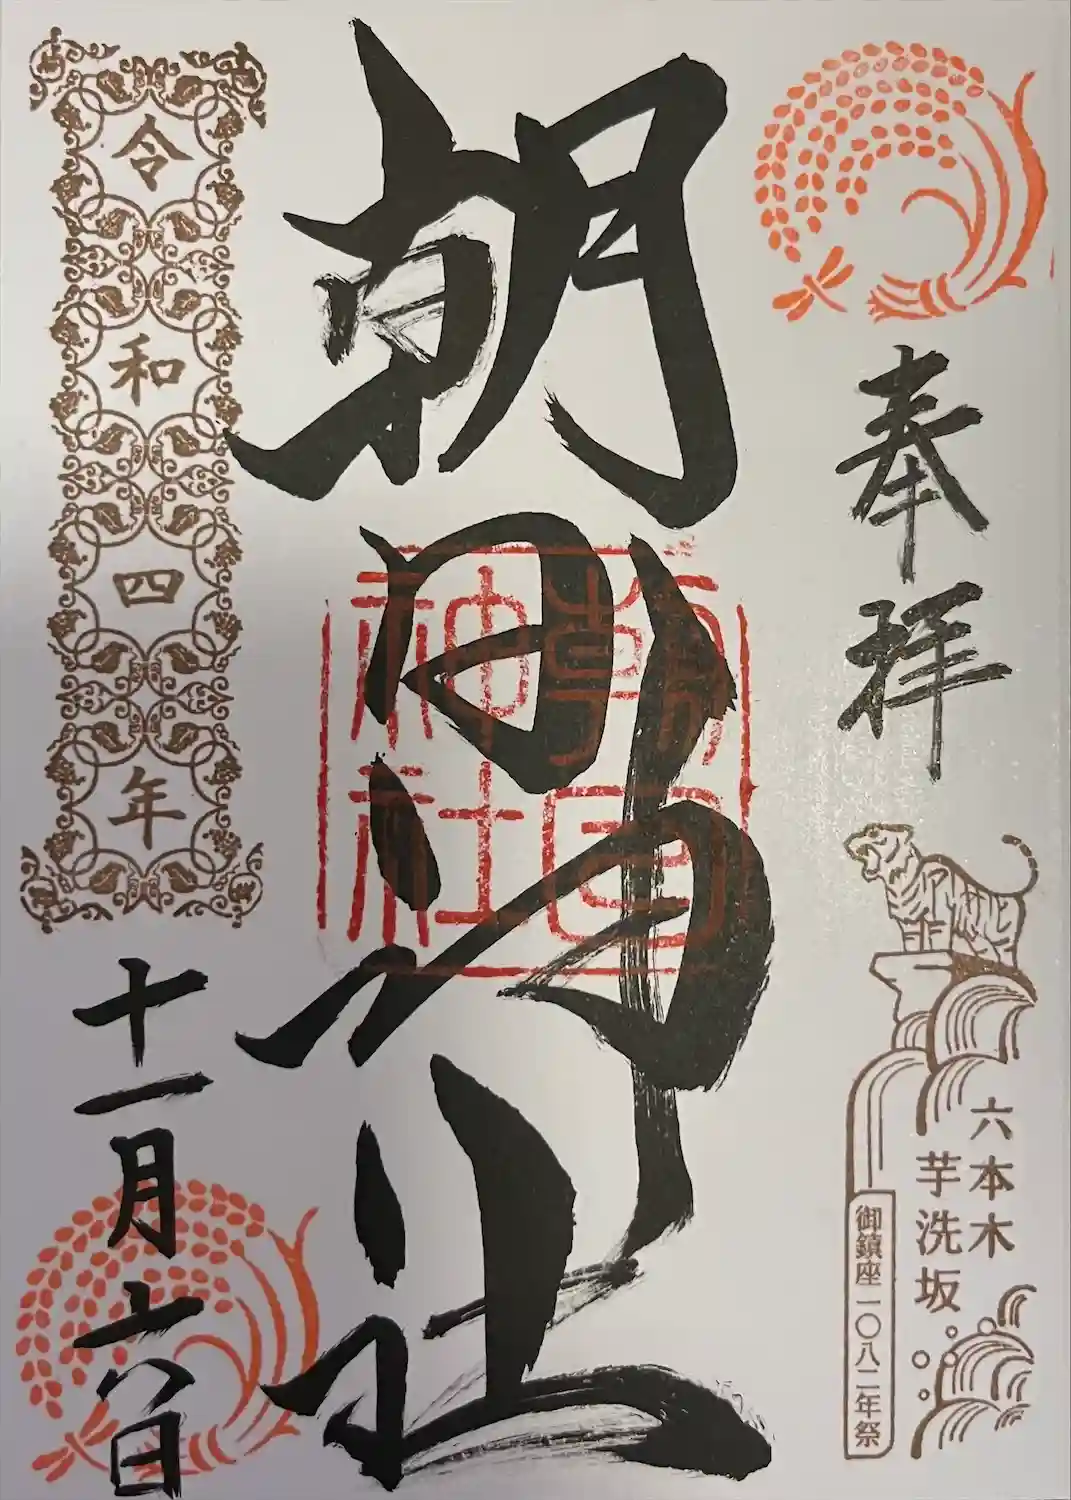 奉拝
六本木
芋洗坂
御鎮座一〇八二年祭
朝日神社
朝日神社
令和四年
十一月十六日